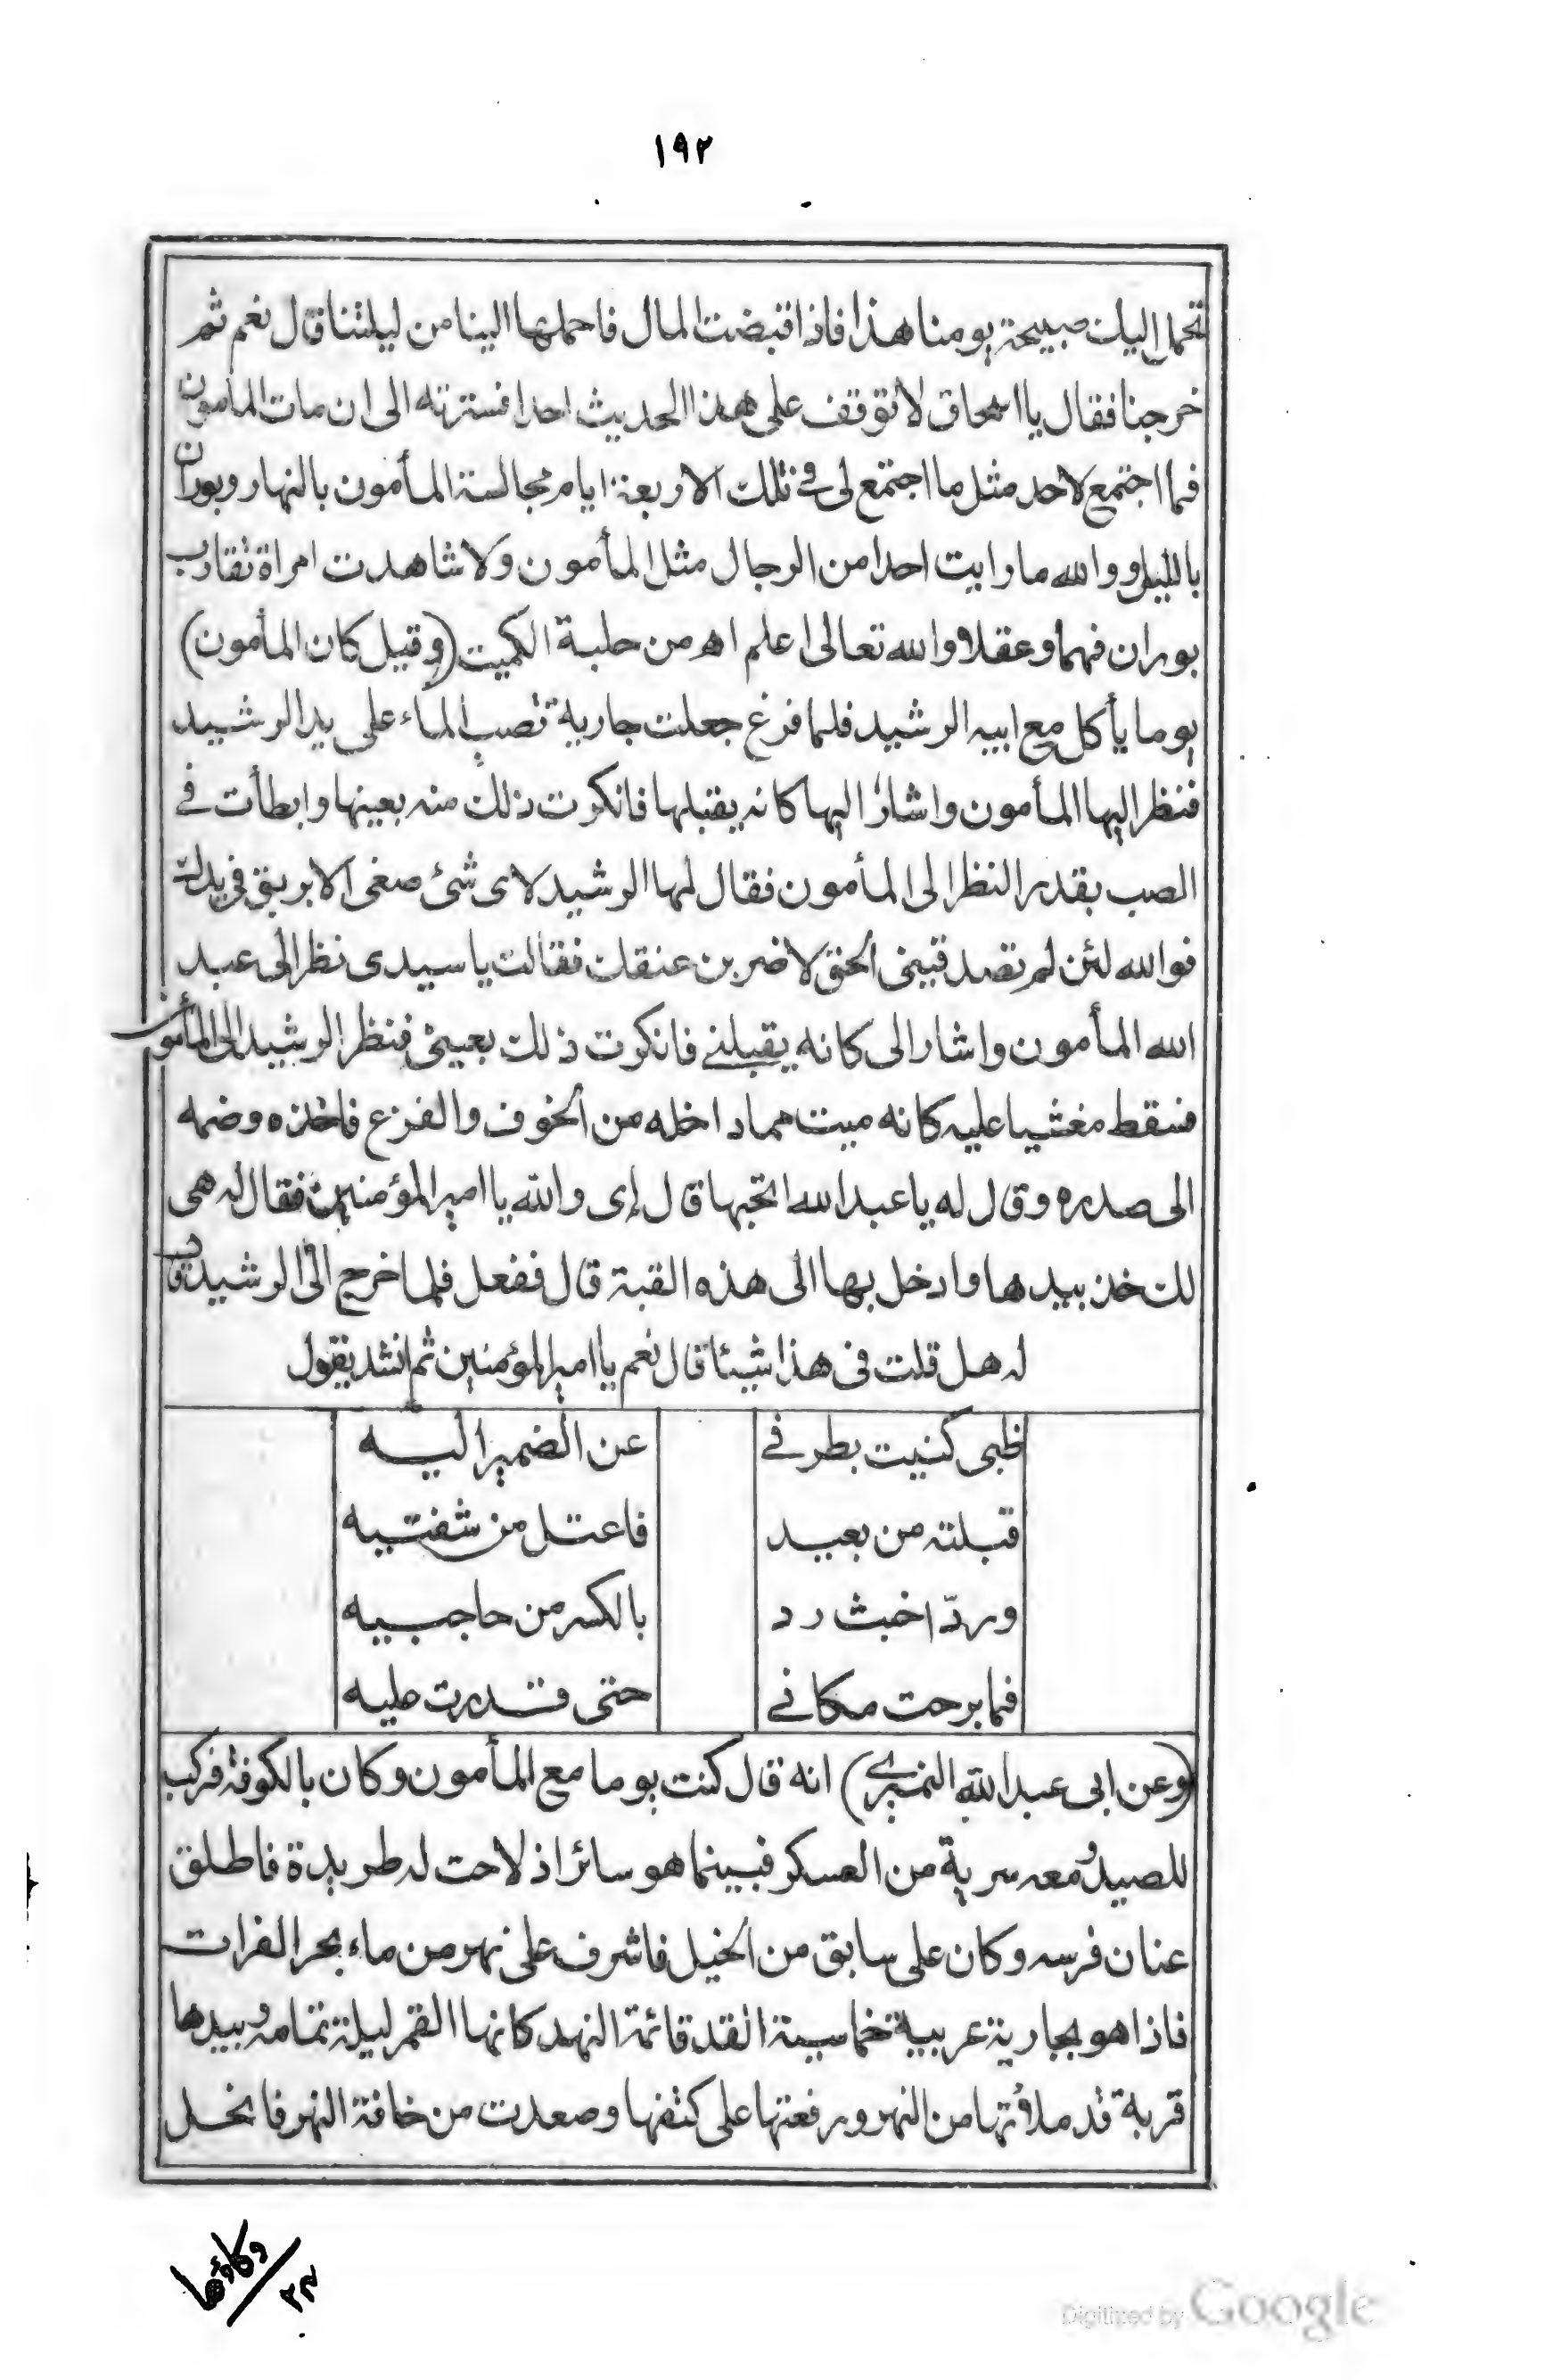 ١٩٢
تحمل اليك صبيحة يومنا هذا فاذا قبضت المال فاحملها الينا من ليلتنا قال نعم ثم
خرجنا فقال يا اسحاق لا توقف على هذا الحديث احدا فسترته الى ان مات المأمون
فما اجتمع لاحد مثل ما اجتمع لى في تلك الاربعة ايام مجالسة المأمون بالنهار وبوران
بالليل ووالله ما رايت احدا من الرجال مثل المأمون ولا شاهدت امراة تقارب
بوران فهما وعقلا والله تعالى اعلم اه من حلبة الكميت (وقيل كان المأمون)
يوما يأكل مع ابيه الرشيد فلما فرغ جعلت جارية تصب الماء على يد الرشيد
فنظر اليها المأمون واشار اليها كانه يقبلها فانكرت ذلك منه بعينها وابطأت في
الصب بقدر النظر الى المأمون فقال لها الرشيد لاى شئ صغى الابريق في يدك
فوالله لئن لم تصدقينى الحق لاضربن عنقك فقالت يا سيدى نظر الى عبد
الله المأمون واشار الى كانه يقبلنے فانكرت ذلك بعينى فنظر الرشيد الى المأمون
فسقط مغشيا عليه كانه ميت مما داخله من الخوف والفزع فاخذه وضمه
الى صدره وقال له يا عبد الله اتحبها قال إى والله يا امير المؤمنين فقال له هى
لك خذ بيدها وادخل بها الى هذه القبة قال ففعل فلما خرج الى الرشيد قال
له هل قلت فى هذا شيئا قال نعم يا امير المؤمنين ثم انشد يقول
ظبى كنيت بطرفے عن الضمير اليـه
قبلته من بعيـد فاعتـل من شفتـيه
وردّ اخبث رد بالكسر من حاجـبيه
فما برحت مكانے حتى قـدرت عليه
(وعن ابى عبد الله النميرے) انه قال كنت يوما مع المأمون وكان بالكوفة فركب
للصيد ومعه سرية من العسكر فبينما هو سائر اذ لاحت له طريدة فاطلق
عنان فرسه وكان على سابق من الخيل فاشرف على نهر من ماء بحر الفرات
فاذا هو بجارية عربية خماسية القد قائمة النهد كانها القمر ليلة تمامه وبيدها
قربة قد ملأتها من النهر ورفعتها على كتفها وصعدت من حافة النهر فانحـل
وكاؤها
٢٣
Digitized by Google